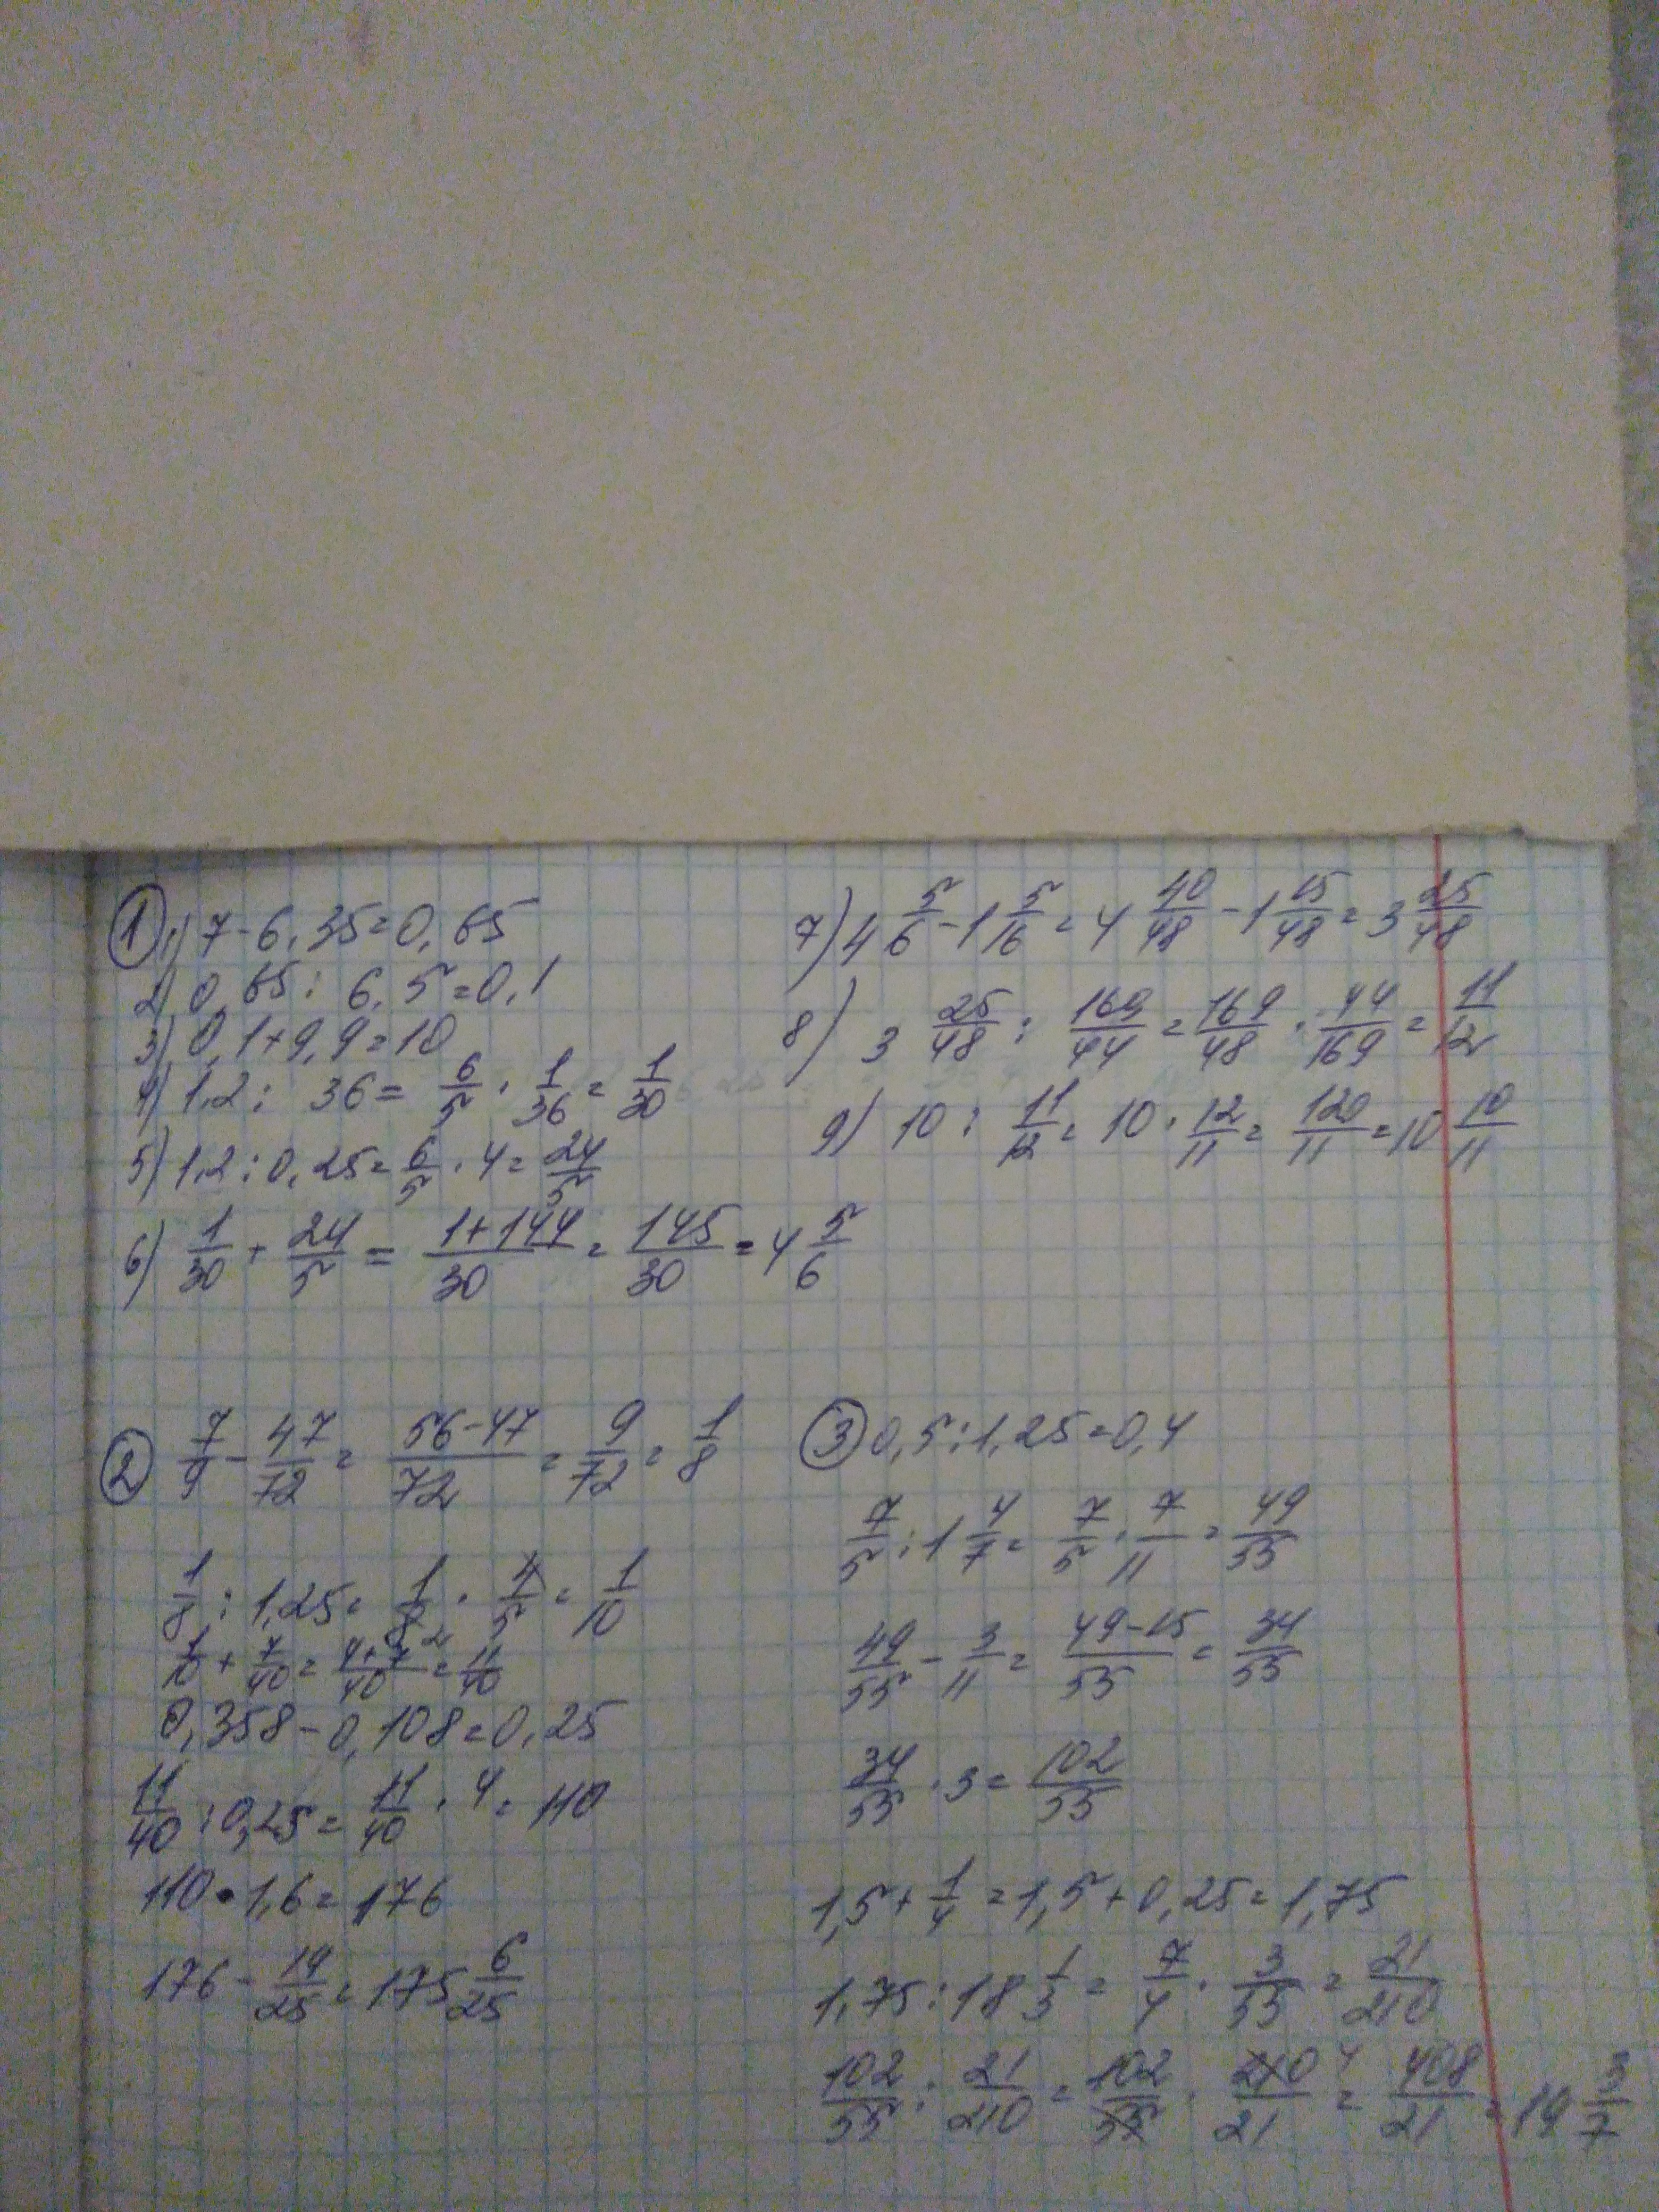 ① 1) 7 - 6,35 = 0,65
2) 0,65 : 6,5 = 0,1
3) 0,1 + 9,9 = 10
4) 1,2 : 36 = 6/5 · 1/36 = 1/30
5) 1,2 : 0,25 = 6/5 · 4 = 24/5
6) 1/30 + 24/5 = (1+144)/30 = 145/30 = 4 5/6
7) 4 5/6 - 1 5/16 = 4 40/48 - 1 15/48 = 3 25/48
8) 3 25/48 : 169/44 = 169/48 · 44/169 = 11/12
9) 10 : 11/12 = 10 · 12/11 = 120/11 = 10 10/11
② 7/9 - 47/72 = (56-47)/72 = 9/72 = 1/8
1/8 : 1,25 = 1/8 2 · 4/5 = 1/10
1/10 + 7/40 = (4+7)/40 = 11/40
0,358 - 0,108 = 0,25
11/40 : 0,25 = 11/40 · 4 = 110
110 · 1,6 = 176
176 - 19/25 = 175 6/25
③ 0,5 : 1,25 = 0,4
7/5 : 1 4/7 = 7/5 · 7/11 = 49/55
49/55 - 3/11 = (49-15)/55 = 34/55
34/55 · 3 = 102/55
1,5 + 1/4 = 1,5 + 0,25 = 1,75
1,75 : 18 1/3 = 7/4 · 3/55 = 21/210
102/55 : 21/210 = 102/55 · 210/21 4 = 408/21 = 19 3/7